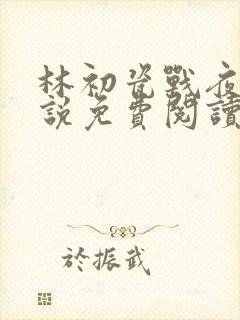 林初瓷戰夜
說免費閱讀
於振武